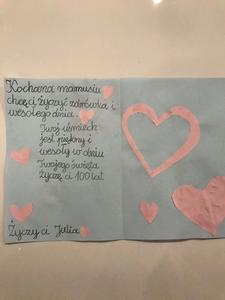 Kochana mamusiu
chcę ci życzyć zdrówka i
wesołego dnia.
Twój uśmiech
jest piękny i
wesoły w dniu
Twojego święta
Życzę ci 100 lat
Życzy ci Julia